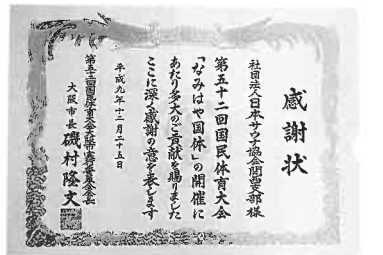 感謝状
社団法人日本サウナ協会関西支部 様
第五十二回国民体育大会
「なみはや国体」の開催に
あたり多大のご貢献を賜りました
ここに深く感謝の意を表します
平成九年十二月二十五日
第五十二回国民体育大会大阪市実行委員会会長
大阪市長 磯村隆文